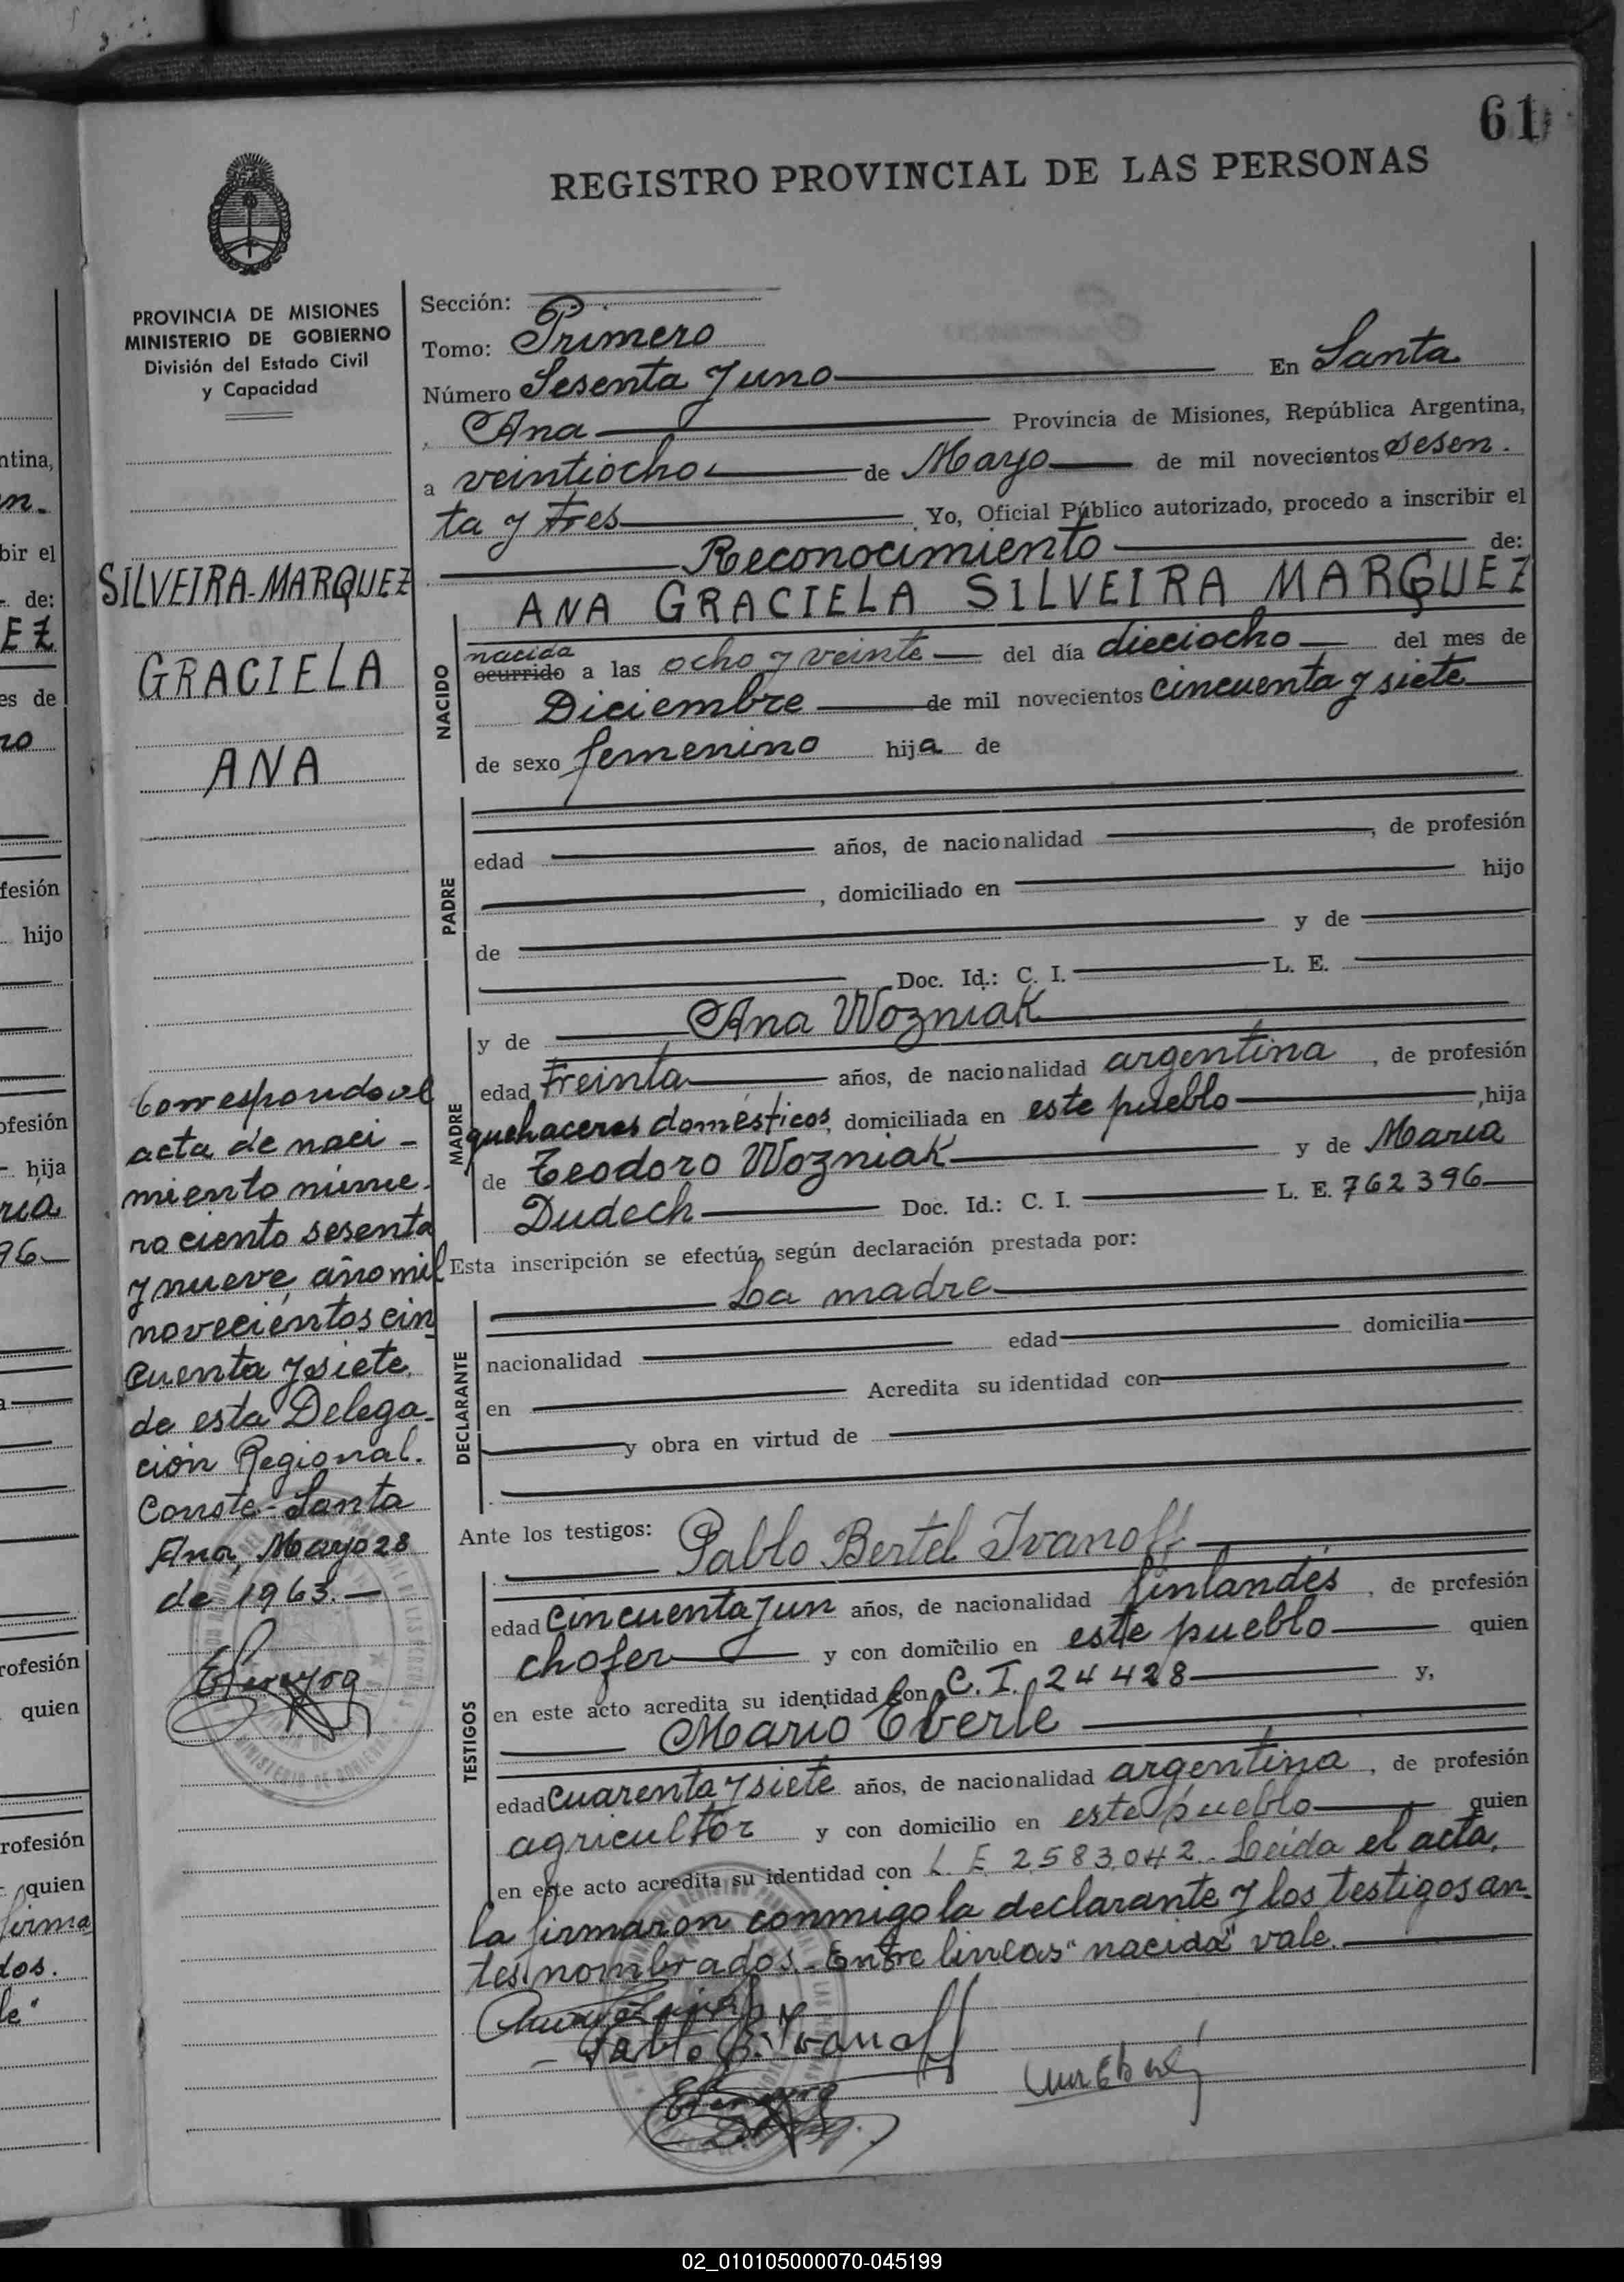 61
REGISTRO PROVINCIAL DE LAS PERSONAS
PROVINCIA DE MISIONES
MINISTERIO DE GOBIERNO
División del Estado Civil
y Capacidad
SILVEIRA-MARQUEZ
GRACIELA
ANA
Corresponde al
acta de naci-
miento núme-
ro ciento sesenta
y nueve, año mil
novecientos cin
cuenta y siete,
de esta Delega-
ción Regional.
Conste.- Santa
Ana, Mayo 28
de 1963.-
Sección:
Tomo: Primero
Número Sesenta y uno En Santa
Ana Provincia de Misiones, República Argentina,
a veintiocho de Mayo de mil novecientos sesen-
ta y tres Yo, Oficial Público autorizado, procedo a inscribir el
Reconocimiento de:
ANA GRACIELA SILVEIRA MARQUEZ
NACIDO
nacida
ocurrido a las ocho y veinte del día dieciocho del mes de
Diciembre de mil novecientos cincuenta y siete
de sexo femenino hija de
PADRE
edad años, de nacionalidad , de profesión
, domiciliado en hijo
de y de
Doc. Id.: C. I. L. E.
MADRE
y de Ana Wozniak
edad treinta años, de nacionalidad argentina , de profesión
quehaceres domésticos, domiciliada en este pueblo , hija
de Teodoro Wozniak y de María
Dudech Doc. Id.: C. I. L. E. 762396
Esta inscripción se efectúa según declaración prestada por:
La madre
DECLARANTE
nacionalidad edad domicilia
en Acredita su identidad con
y obra en virtud de
Ante los testigos: Pablo Bertel Ivanoff
TESTIGOS
edad cincuenta y un años, de nacionalidad finlandés , de profesión
chofer y con domicilio en este pueblo quien
en este acto acredita su identidad con C. I. 24428 y,
Mario Eberle
edad cuarenta y siete años, de nacionalidad argentina , de profesión
agricultor y con domicilio en este pueblo quien
en este acto acredita su identidad con L. E 2.583.042.. Leída el acta,
la firmaron conmigo la declarante y los testigos an-
tes nombrados.- Entre lineas "nacida" vale.
Pablo B. Ivanoff
02_010105000070-045199